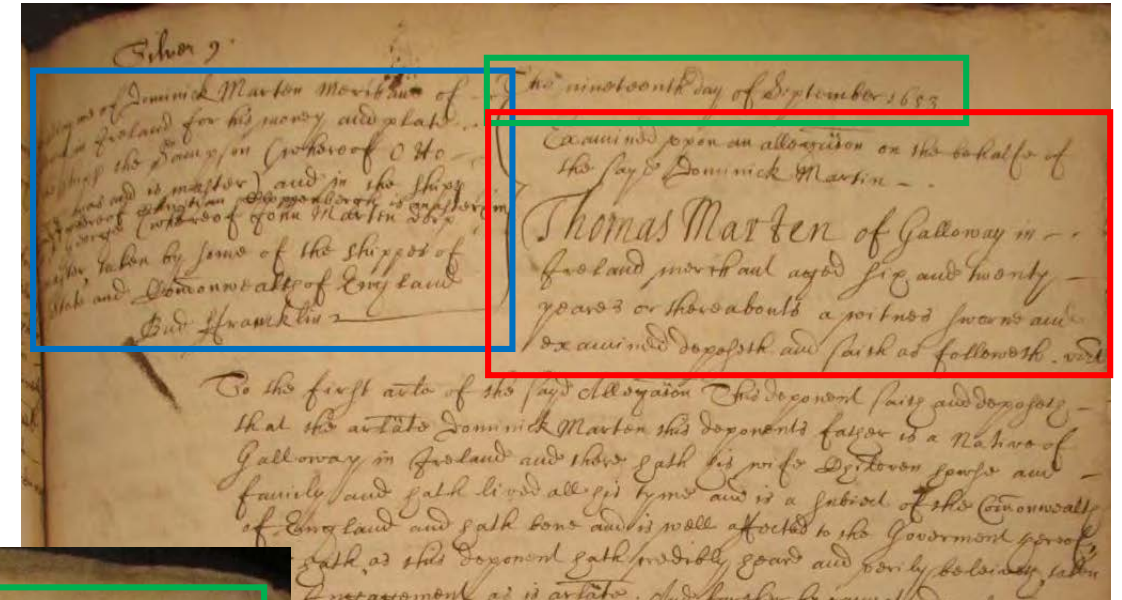 Silver 9
of Dominick Marten Merchant of
Ireland for his money and plate
shipp the Sampson (whereof Otto
was and is master) and in the shipp
whereof is master in
George (whereof John Martin Dorp
taken by some of the shippes of
State and Commonwealth of England
Bud Francklin
The nineteenth day of September 1653
Examined upon an allegation on the behalfe of
the sayd Dominick Martin
Thomas Marten of Galloway in
Ireland merchant aged six and twenty
yeares or thereabouts a witnes sworne and
examined deposeth and saith as followeth. vizt
To the first arte of the sayd Allegation This deponent saith and deposeth
that the arlate Dominick Marten this deponents father is a Native of
Galloway in Ireland and there hath his wife Children howse and
family and hath lived all his tyme and is a subiect of the Commonwealth
of England and hath bene and is well affected to the Goverment hereof,
hath as this deponent hath credibly heard and verily beleiveth taken
Engagement as is arlate.